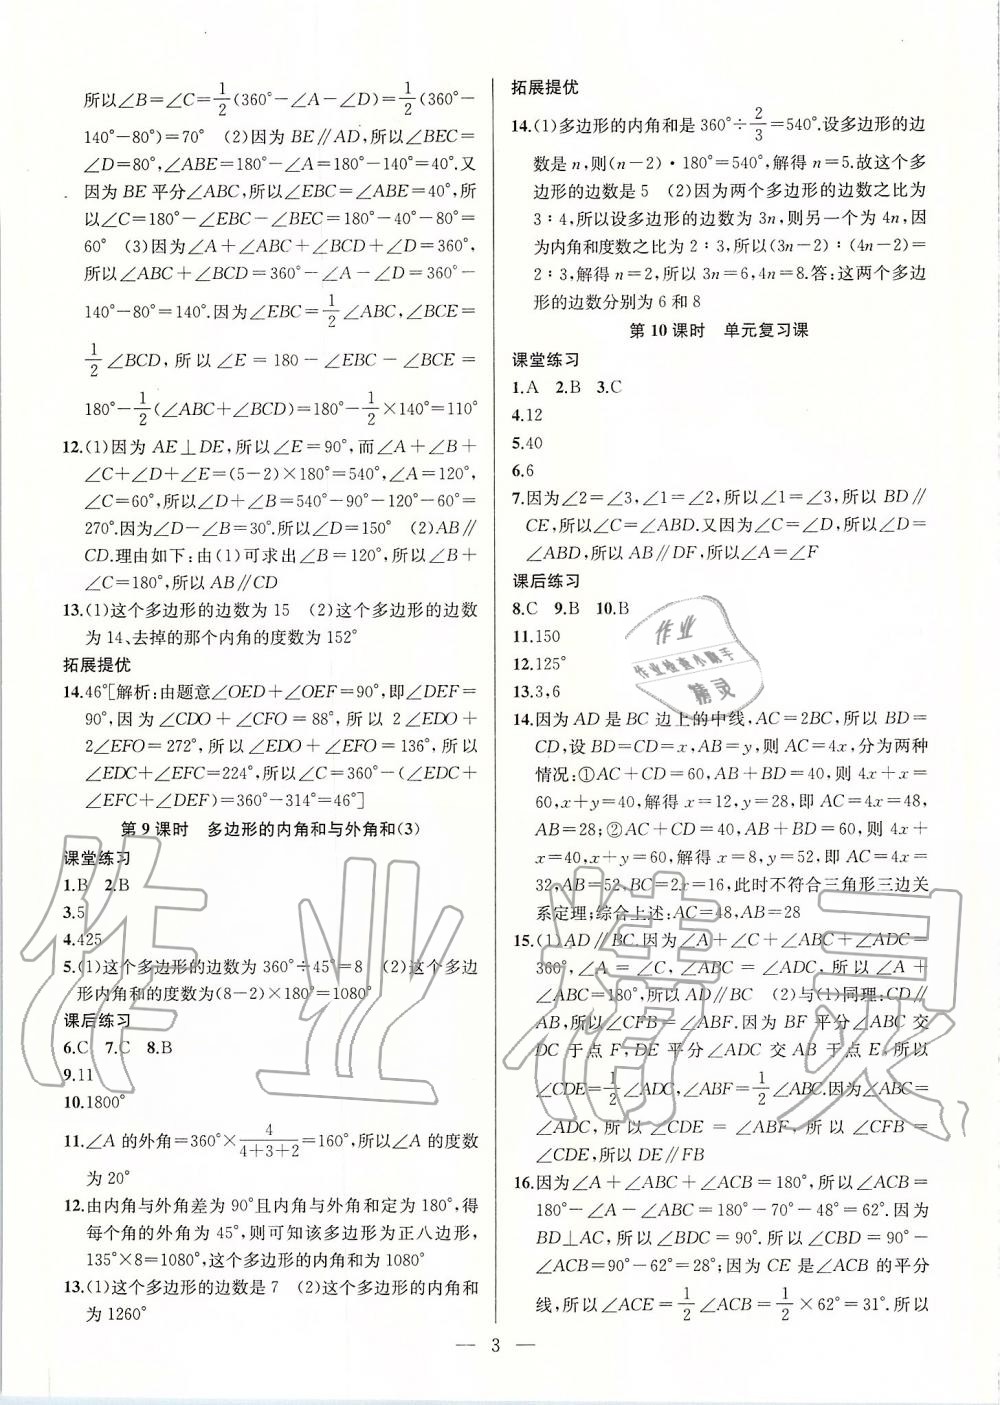 所以∠B=∠C=1/2(360°-∠A-∠D)=1/2(360°-
140°-80°)=70° (2)因为BE∥AD,所以∠BEC=
∠D=80°,∠ABE=180°-∠A=180°-140°=40°.又
因为BE平分∠ABC,所以∠EBC=∠ABE=40°,所
以∠C=180°-∠EBC-∠BEC=180°-40°-80°=
60° (3)因为∠A+∠ABC+∠BCD+∠D=360°,
所以∠ABC+∠BCD=360°-∠A-∠D=360°-
140°-80°=140°.因为∠EBC=1/2∠ABC,∠BCE=
1/2∠BCD,所以∠E=180-∠EBC-∠BCE=
180°-1/2(∠ABC+∠BCD)=180°-1/2×140°=110°
12.(1)因为AE⊥DE,所以∠E=90°,而∠A+∠B+
∠C+∠D+∠E=(5-2)×180°=540°,∠A=120°,
∠C=60°,所以∠D+∠B=540°-90°-120°-60°=
270°.因为∠D-∠B=30°.所以∠D=150° (2)AB∥
CD.理由如下:由(1)可求出∠B=120°,所以∠B+
∠C=180°,所以AB∥CD
13.(1)这个多边形的边数为15 (2)这个多边形的边数
为14、去掉的那个内角的度数为152°
拓展提优
14.46°[解析:由题意∠OED+∠OEF=90°,即∠DEF=
90°,因为∠CDO+∠CFO=88°,所以2∠EDO+
2∠EFO=272°,所以∠EDO+∠EFO=136°,所以
∠EDC+∠EFC=224°,所以∠C=360°-(∠EDC+
∠EFC+∠DEF)=360°-314°=46°]
第9课时 多边形的内角和与外角和(3)
课堂练习
1.B 2.B
3.5
4.425
5.(1)这个多边形的边数为360°÷45°=8 (2)这个多边
形内角和的度数为(8-2)×180°=1080°
课后练习
6.C 7.C 8.B
9.11
10.1800°
11.∠A的外角=360°×4/(4+3+2)=160°,所以∠A的度数
为20°
12.由内角与外角差为90°且内角与外角和定为180°,得
每个角的外角为45°,则可知该多边形为正八边形,
135°×8=1080°,这个多边形的内角和为1080°
13.(1)这个多边形的边数是7 (2)这个多边形的内角和
为1260°
拓展提优
14.(1)多边形的内角和是360°÷2/3=540°.设多边形的边
数是n,则(n-2)·180°=540°,解得n=5.故这个多
边形的边数是5 (2)因为两个多边形的边数之比为
3∶4,所以设多边形的边数为3n,则另一个为4n,因
为内角和度数之比为2∶3,所以(3n-2)∶(4n-2)=
2∶3,解得n=2,所以3n=6,4n=8.答:这两个多边
形的边数分别为6和8
第10课时 单元复习课
课堂练习
1.A 2.B 3.C
4.12
5.40
6.6
7.因为∠2=∠3,∠1=∠2,所以∠1=∠3,所以BD∥
CE,所以∠C=∠ABD.又因为∠C=∠D,所以∠D=
∠ABD,所以AB∥DF,所以∠A=∠F
课后练习
8.C 9.B 10.B
11.150
12.125°
13.3,6
14.因为AD是BC边上的中线,AC=2BC,所以BD=
CD,设BD=CD=x,AB=y,则AC=4x,分为两种
情况:①AC+CD=60,AB+BD=40,则4x+x=
60,x+y=40,解得x=12,y=28,即AC=4x=48,
AB=28;②AC+CD=40,AB+BD=60,则4x
+x=40,x+y=60,解得x=8,y=52,即AC=4x=
32,AB=52,BC=2x=16,此时不符合三角形三边关
系定理;综合上述:AC=48,AB=28
15.(1)AD∥BC.因为∠A+∠C+∠ABC+∠ADC=
360°,∠A=∠C,∠ABC=∠ADC,所以∠A+
∠ABC=180°,所以AD∥BC (2)与(1)同理:CD∥
AB,所以∠CFB=∠ABF.因为BF平分∠ABC交
DC于点F,DE平分∠ADC交AB于点E,所以
∠CDE=1/2∠ADC,∠ABF=1/2∠ABC.因为∠ABC=
∠ADC,所以∠CDE=∠ABF,所以∠CFB=
∠CDE,所以DE∥FB
16.因为∠A+∠ABC+∠ACB=180°,所以∠ACB=
180°-∠A-∠ABC=180°-70°-48°=62°.因为
BD⊥AC,所以∠BDC=90°.所以∠CBD=90°-
∠ACB=90°-62°=28°;因为CE是∠ACB的平分
线,所以∠ACE=1/2∠ACB=1/2×62°=31°.所以
— 3 —
作业
作业检查小助手
精灵
作业精灵